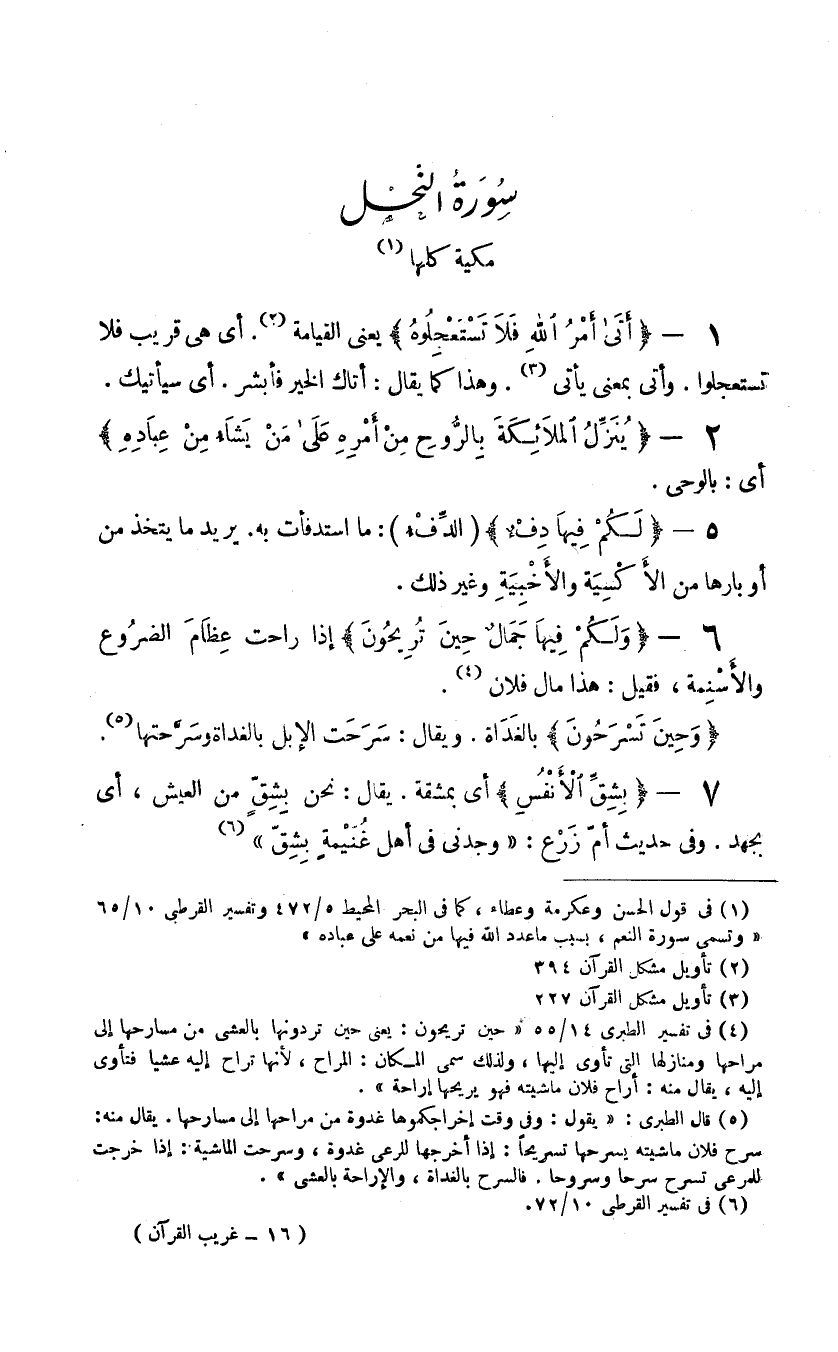 سُورَةُ النحل
مكية كلها (١)
١ — ﴿ أَتَىٰ أَمْرُ ٱللهِ فَلَا تَسْتَعْجِلُوهُ ﴾ يعنى القيامة (٢). أى هى قريب فلا
تستعجلوا . وأتى بمعنى يأتى (٣) . وهذا كما يقال : أتاك الخير فأبشر . أى سيأتيك .
٢ — ﴿ يُنَزِّلُ ٱلمَلَائِكَةَ بِالرُّوحِ مِنْ أَمْرِهِ عَلَىٰ مَنْ يَشَاء مِنْ عِبَادِهِ ﴾
أى : بالوحى .
٥ — ﴿ لَكُمْ فِيهَا دِفْءٌ ﴾ ( الدِّفْء ) : ما استدفأت به. يريد ما يتخذ من
أوبارها من الأَكْسِيَة والأَخْبِيَةِ وغير ذلك .
٦ — ﴿ وَلَكُمْ فِيهَا جَمَالٌ حِينَ تُرِيحُونَ ﴾ إذا راحت عِظَامَ الضروُع
والأَسْنِمة ، فقيل : هذا مال فلان (٤) .
﴿ وَحِينَ تَسْرَحُونَ ﴾ بالغَدَاة . ويقال : سَرَحَت الإبل بالغداة وسَرَّحتها (٥).
٧ — ﴿ بِشِقِّ ٱلْأَنْفُسِ ﴾ أى بمشقة . يقال : نحن بِشِقٍّ من العيش ، أى
بجهد . وفى حديث أمّ زَرْع : « وجدنى فى أهل غُنَيْمةٍ بِشِقّ » (٦)
(١) فى قول الحسن وعكرمة وعطاء ، كما فى البحر المحيط ٤٧٢/٥ وتفسير القرطبى ٦٥/١٠
« وتسمى سورة النعم ، بسبب ماعدد الله فيها من نعمه على عباده »
(٢) تأويل مشكل القرآن ٣٩٤
(٣) تأويل مشكل القرآن ٢٢٧
(٤) فى تفسير الطبرى ٥٥/١٤ « حين تريحون : يعنى حين تردونها بالعشى من مسارحها إلى
مراحها ومنازلها التى تأوى إليها ، ولذلك سمى المكان : المراح ، لأنها تراح إليه عشيا فتأوى
إليه ، يقال منه : أراح فلان ماشيته فهو يريحها إراحة » .
(٥) قال الطبرى : « يقول : وفى وقت إخراجكموها غدوة من مراحها إلى مسارحها . يقال منه :
سرح فلان ماشيته يسرحها تسريحاً : إذا أخرجها للرعى غدوة ، وسرحت الماشية : إذا خرجت
للمرعى تسرح سرحا وسروحا . فالسرح بالغداة ، والإراحة بالعشى » .
(٦) فى تفسير القرطبى ٧٢/١٠.
( ١٦ — غريب القرآن )